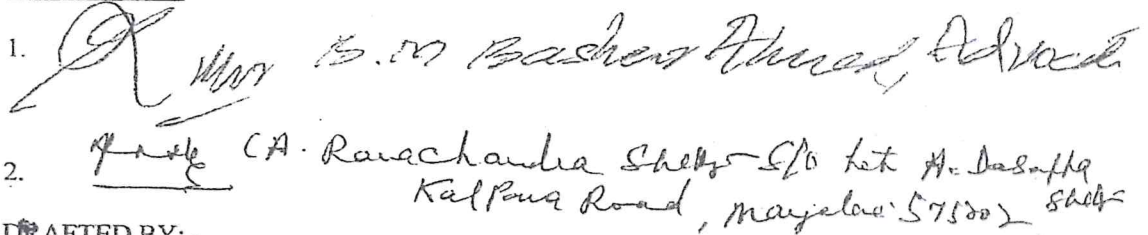 1. B.M Basheer Ahmed, Advocate
2. (A. Ramachandra Shetty S/o late A. Dasappa Shetty
Kalpana Road, Mangalore 575002
DRAFTED BY: